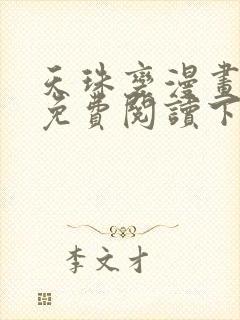 天珠變漫畫
免費閱讀下
李文才